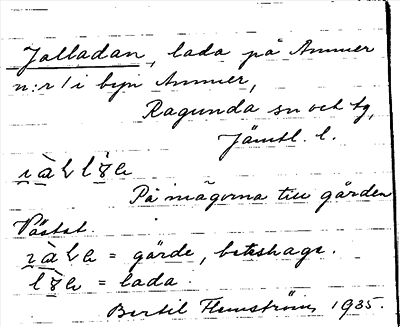 Jalladan, lada på Ammer
n:r 1 i byn Ammer,
Ragunda sn och tg,
Jämtl. l.
På mågorna till gården
Västat.
= gärde, beteshage.
= lada
Bertil Flemström, 1935.